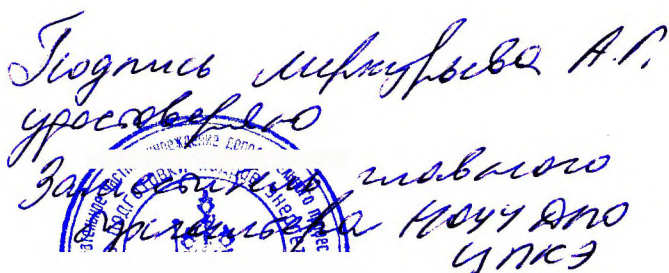 Подпись Меркурьева А.Г.
удостоверяю
Заместитель главного
бухгалтера НОУЧ ДПО
ЦПКЭ